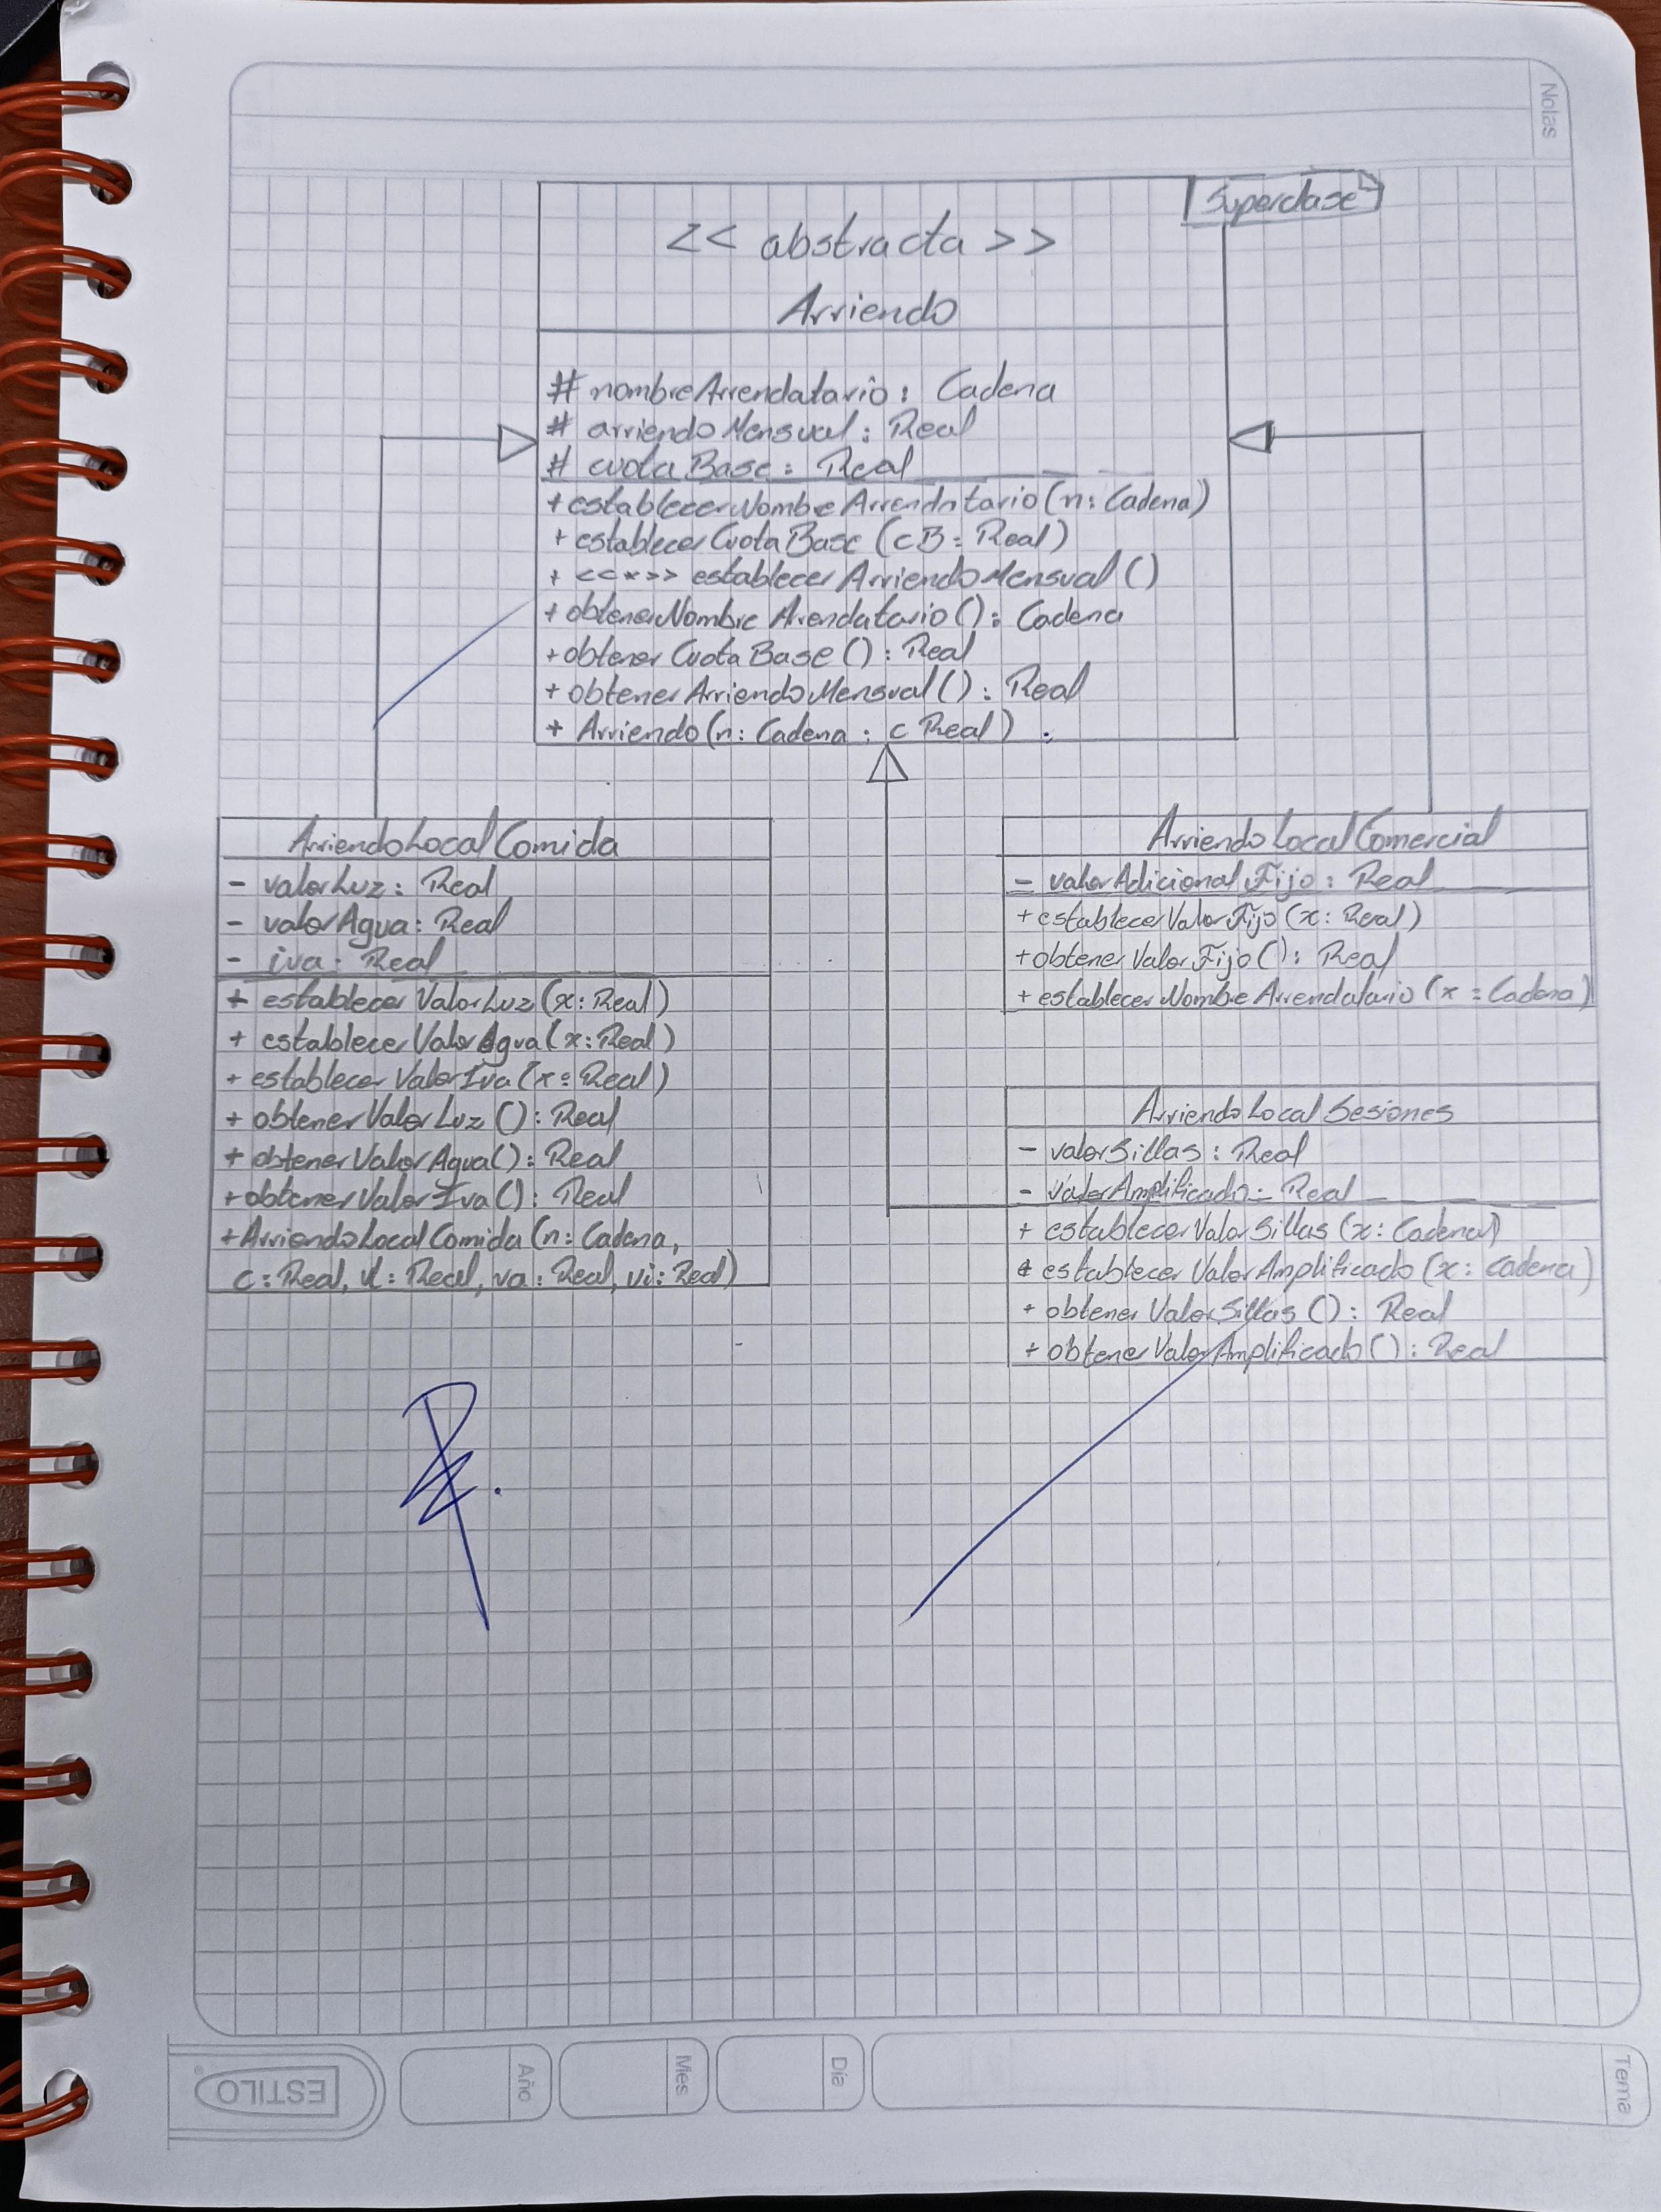 Notas
Superclase
<< abstracta >>
Arriendo
# nombreArrendatario: Cadena
# arriendoMensual: Real
# cuotaBase: Real
+ establecerNombreArrendatario(n: Cadena)
+ establecerCuotaBase(cB: Real)
+ <<*>> establecerArriendoMensual()
+ obtenerNombreArendatario(): Cadena
+ obtenerCuotaBase(): Real
+ obtenerArriendoMensual(): Real
+ Arriendo(n: Cadena; c Real)
ArriendoLocalComida
- valorLuz: Real
- valorAgua: Real
- iva: Real
+ establecerValorLuz(x: Real)
+ establecerValorAgua(x: Real)
+ establecerValorIva(x: Real)
+ obtenerValorLuz(): Real
+ obtenerValorAgua(): Real
+ obtenerValorIva(): Real
+ ArriendoLocalComida(n: Cadena,
c: Real, vl: Real, va: Real, vi: Real)
ArriendoLocalComercial
- valorAdicionalFijo: Real
+ establecerValorFijo(x: Real)
+ obtenerValorFijo(): Real
+ establecerNombreArrendatario(x: Cadena)
ArriendoLocalSesiones
- valorSillas: Real
- valorAmplificado: Real
+ establecerValorSillas(x: Cadena)
+ establecerValorAmplificado(x: cadena)
+ obtenerValorSillas(): Real
+ obtenerValorAmplificado(): Real
ESTILO
Año
Mes
Día
Tema